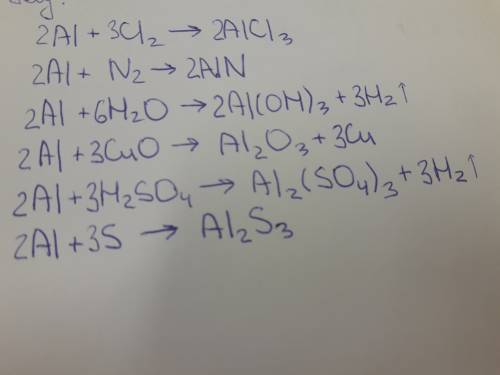 2Al + 3Cl₂ → 2AlCl₃
2Al + N₂ → 2AlN
2Al + 6H₂O → 2Al(OH)₃ + 3H₂↑
2Al + 3CuO → Al₂O₃ + 3Cu
2Al + 3H₂SO₄ → Al₂(SO₄)₃ + 3H₂↑
2Al + 3S → Al₂S₃